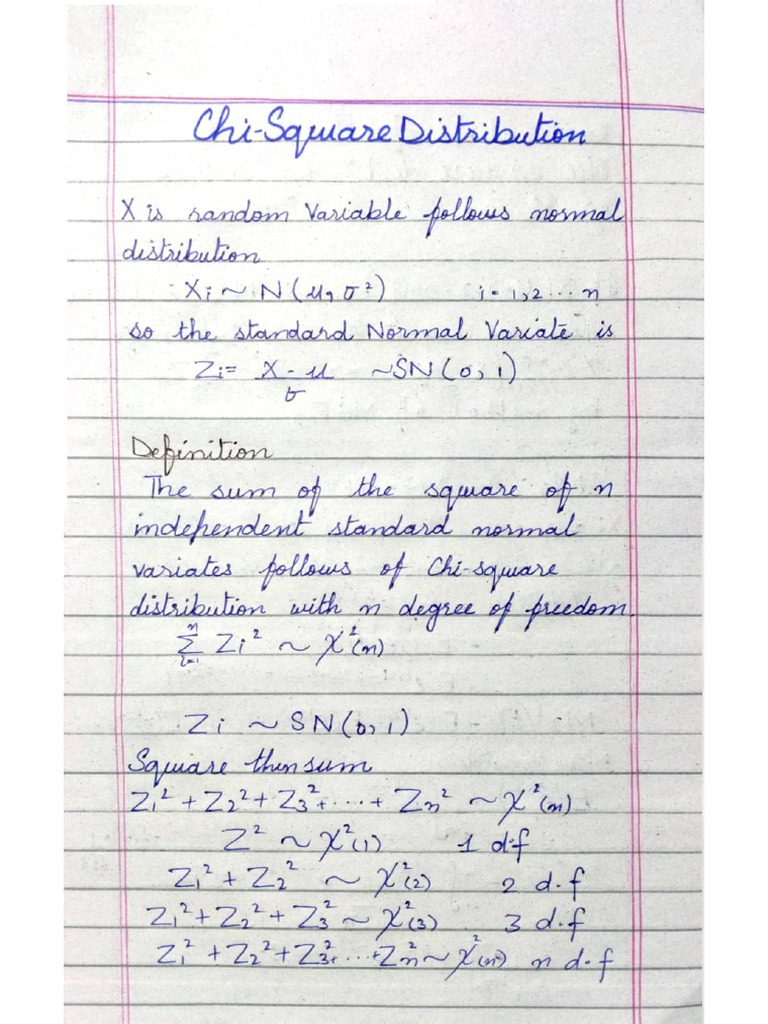 Chi-Square Distribution
X is random variable follows normal
distribution
Xi ~ N(μ, σ²) i = 1,2 ... n
so the standard Normal Variate is
Zi = X - μ / σ ~SN(0,1)
Definition
The sum of the square of n
independent standard normal
variates follows of Chi-square
distribution with n degree of freedom.
n∑i=1 Zi² ~ χ²(n)
Zi ~ SN(0,1)
Square then sum
Z₁² + Z₂² + Z₃² + ... + Zn² ~ χ²(n)
Z² ~ χ²(1) 1 d.f
Z₁² + Z₂² ~ χ²(2) 2 d.f
Z₁² + Z₂² + Z₃² ~ χ²(3) 3 d.f
Z₁² + Z₂² + Z₃² + ... + Zn² ~ χ²(n) n d.f